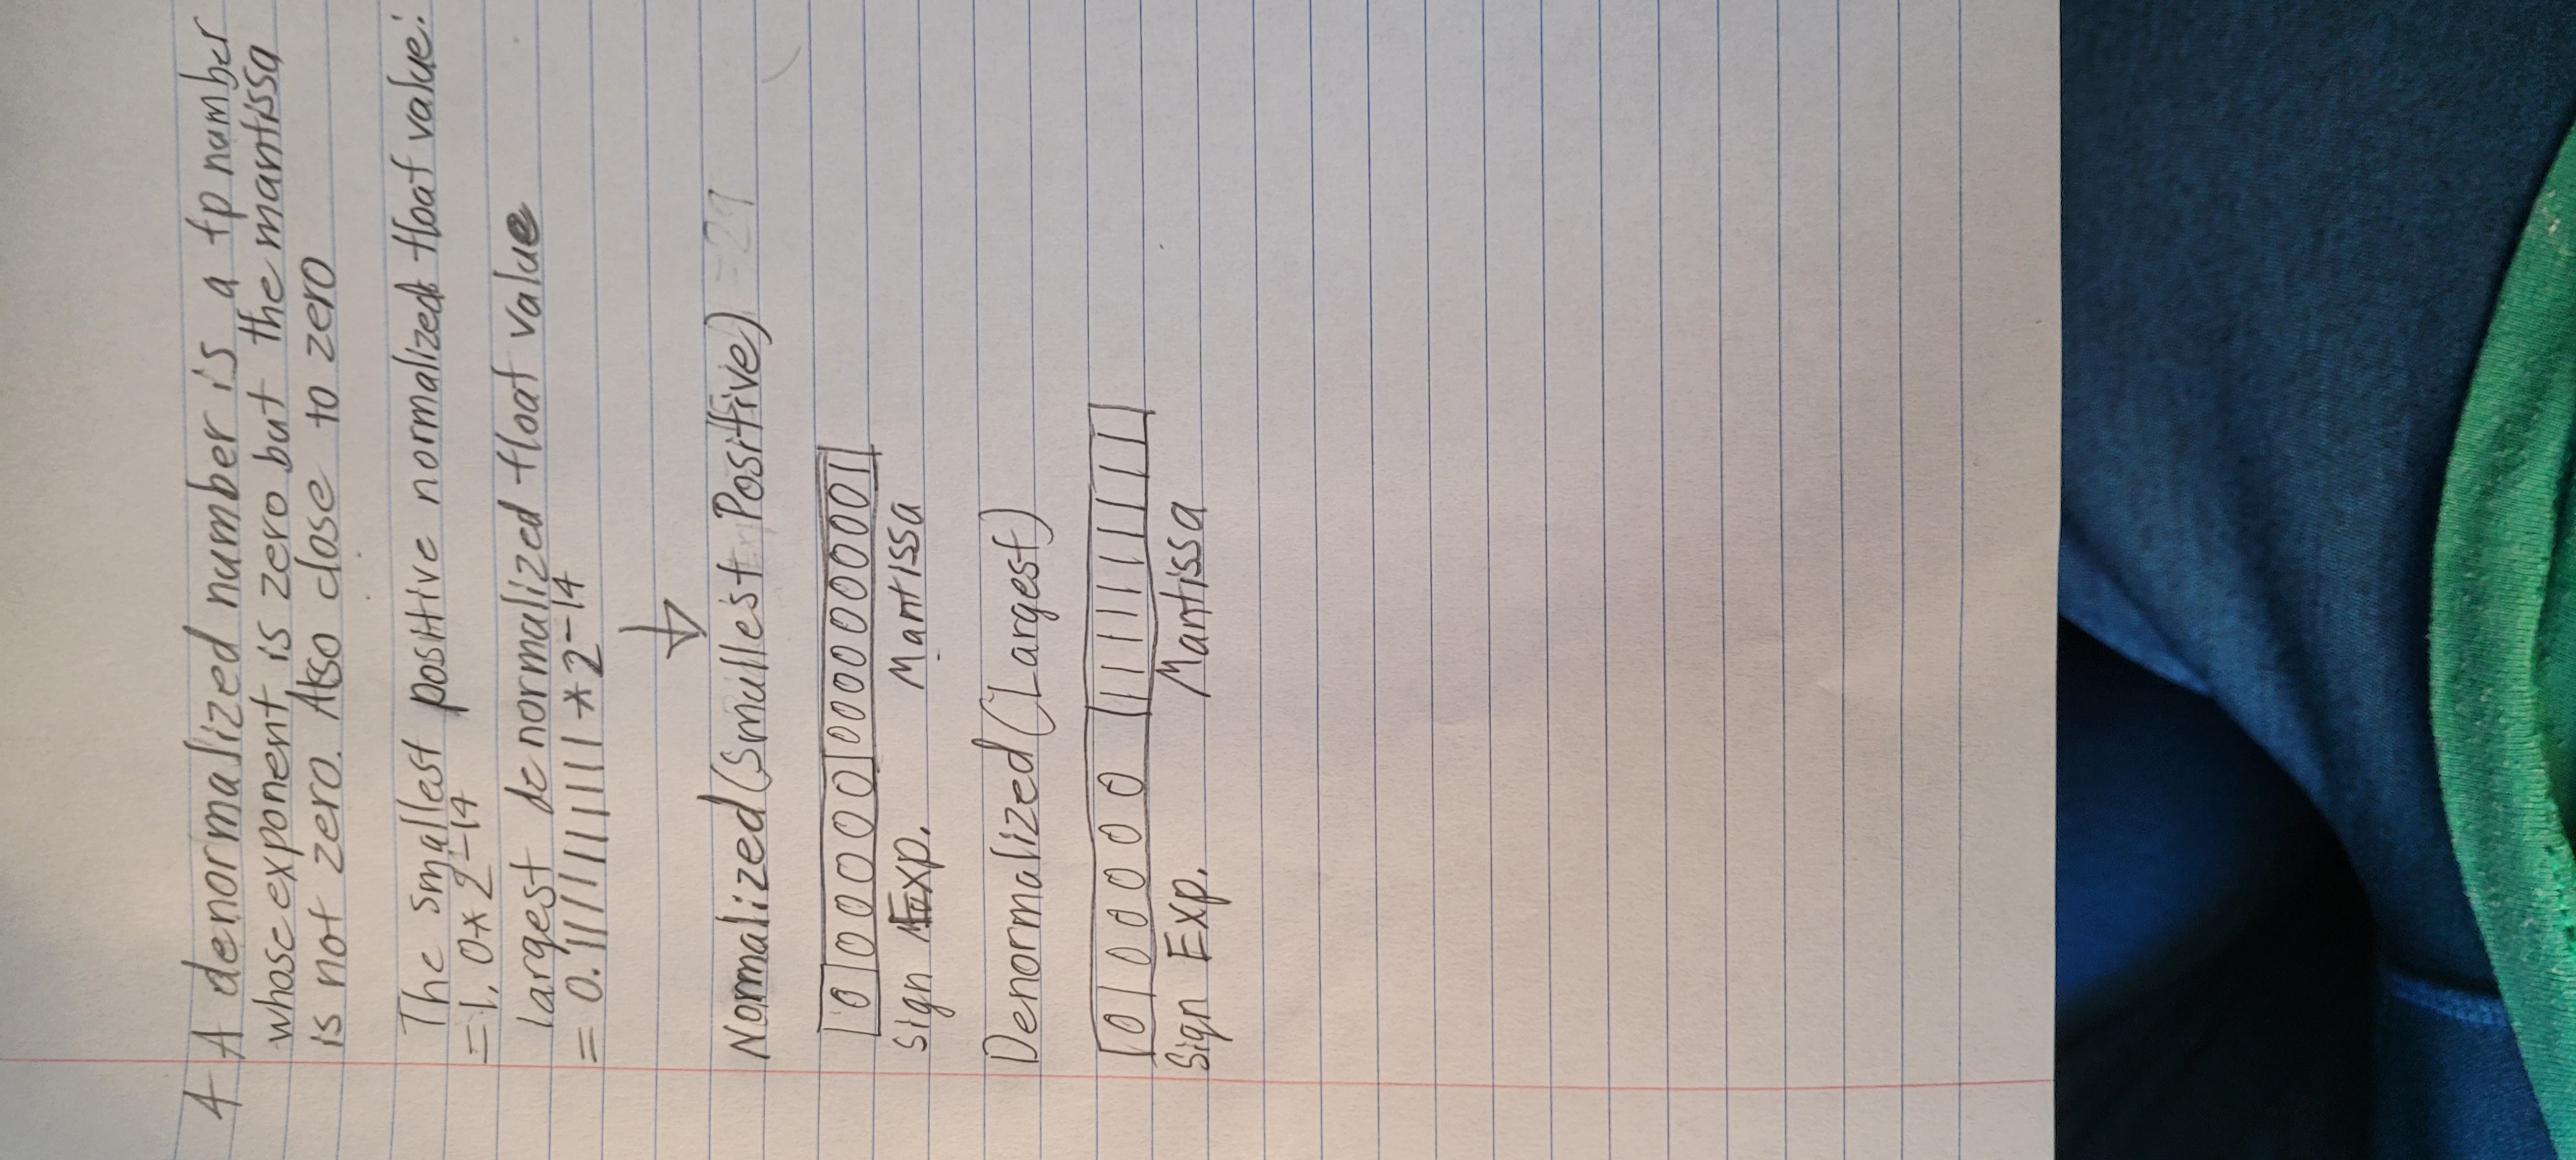 4 A denormalized number is a fp number
whose exponent is zero but the mantissa
is not zero. Also close to zero
The smallest positive normalized float value:
=1.0*2^-14
largest denormalized float value
= 0.1111111111*2^-14
↓
Normalized (Smallest Positive)
0 00000 0000000001
Sign Exp. Mantissa
Denormalized (Largest)
0 00000 1111111111
Sign Exp. Mantissa